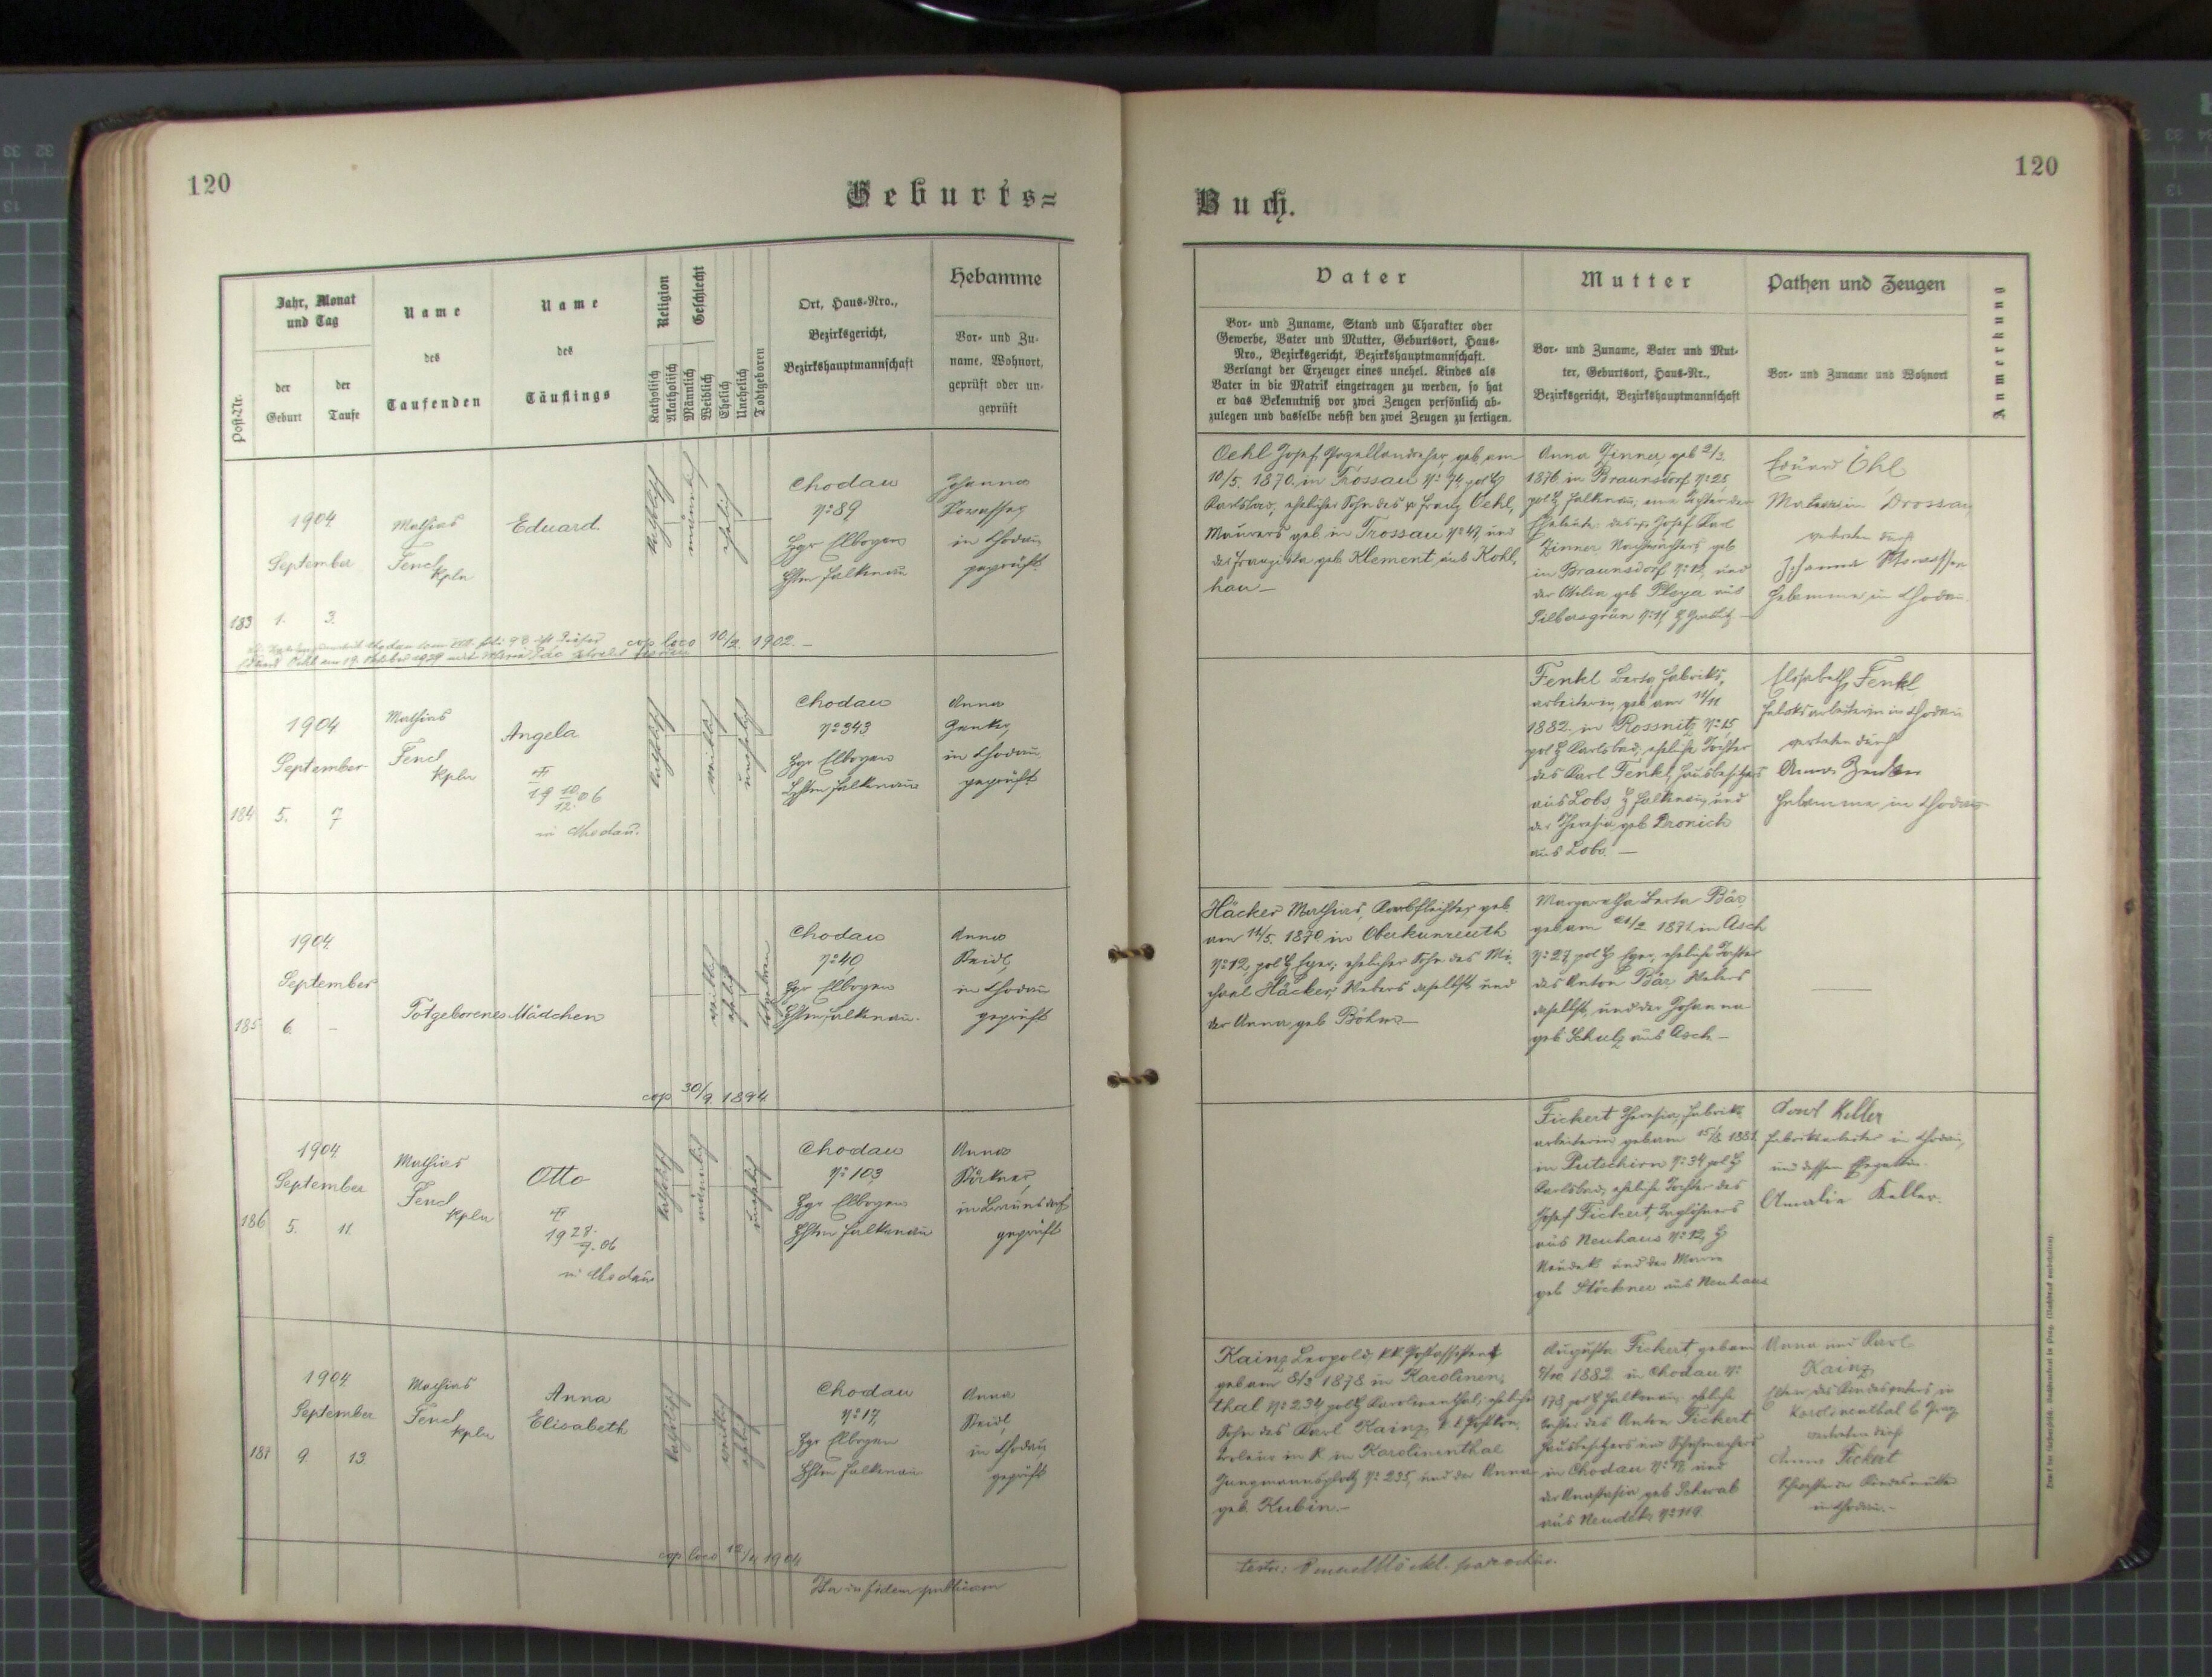 120
Geburts=
Jahr, Monat
und Tag
Name
des
Taufenden
Name
des
Täuflings
Religion
Geschlecht
Ort, Haus-Nro.,
Bezirksgericht,
Bezirkshauptmannschaft
Hebamme
Vor- und Zu-
name, Wohnort,
geprüft oder un-
geprüft
Post-Nr.
der
Geburt
der
Taufe
Katholisch
Akatholisch
Männlich
Weiblich
Ehelich
Unehelich
Todtgeboren
1904
September
183 1. 3.
Mathias
Fencl
Kpln
Eduard.
katholisch
männlich
ehelich
Chodau
No 89
Bgr Elbogen
Bhtm Falkenau
Johanna
in Chodau
geprüft
cop loco 10/2. 1902. –
1904
September
184 5. 7
Mathias
Fencl
Kpln
Angela
19 10/12. 06
in Chodau.
katholisch
weiblich
unehelich
Chodau
No 343
Bgr Elbogen
Bhtm Falkenau
Anna
in Chodau,
geprüft
1904
September
185 6. –
Totgeborenes Mädchen
weiblich
ehelich
totgeboren
Chodau
No 40,
Bgr Elbogen
Bhtm Falkenau.
Anna
Reidl,
in Chodau
geprüft
cop 30/9. 1894
1904
September
186 5. 11.
Mathias
Fencl
Kpln
Otto
19 28./7. 06
in Chodau
katholisch
männlich
unehelich
Chodau
No 103,
Bgr Elbogen
Bhtm Falkenau
Anna
in Braunsdorf
geprüft
1904
September
187 9. 13
Mathias
Fencl
Kpln
Anna
Elisabeth
katholisch
weiblich
ehelich
Chodau
No 17,
Bgr Elbogen
Bhtm Falkenau
Anna
Reidl,
in Chodau
geprüft
cop loco 1904
Ita in fidem publicam
120
Buch.
Vater
Vor- und Zuname, Stand und Charakter oder
Gewerbe, Vater und Mutter, Geburtsort, Haus-
Nro., Bezirksgericht, Bezirkshauptmannschaft.
Verlangt der Erzeuger eines unehel. Kindes als
Vater in die Matrik eingetragen zu werden, so hat
er das Bekenntniß vor zwei Zeugen persönlich ab-
zulegen und dasselbe nebst den zwei Zeugen zu fertigen.
Mutter
Vor- und Zuname, Vater und Mut-
ter, Geburtsort, Haus-Nr.,
Bezirksgericht, Bezirkshauptmannschaft
Pathen und Zeugen
Vor- und Zuname und Wohnort
Anmerkung
Oehl Josef, Porzellandreher, geb. am
10/5. 1870. in Trossau No 74, pol B
Karlsbad, ehelicher Sohn des Franz Oehl,
Maurers geb in Trossau No 47, und
der Franziska geb Klement aus Kohl,
hau –
Anna Zinner, geb 2/3.
1876 in Braunsdorf No 25,
pol B Falkenau, eine Tochter der
Eheleute: des Josef Karl
Zinner Nachtwächters geb
in Braunsdorf No 12, und
der Otilia geb Pleyer aus
Silbersgrün No 11, B Graslitz –
Eduard Öhl
vertreten durch
Johanna
Hebamme in Chodau.
Fenkl Berta Fabriks,
arbeiterin, geb am 11/11
1882. in Rossnitz, No 15,
pol B Karlsbad, eheliche Tochter
des Karl Fenkl, Hausbesitzers
aus Lobs B Falkenau, und
der Theresia geb Dronich
aus Lobs. –
Elisabeth Fenkl
Fabriksarbeiterin in Chodau
vertreten durch
Anna
Hebamme in Chodau
Häcker Mathias, Korbflechter, geb.
am 11/5. 1870 in Oberkunreuth
No 12, pol B Eger, ehelicher Sohn des Mi-
chael Häcker, Webers daselbst und
der Anna geb Böhm –
Margaretha Berta Bär,
geb am 21/2. 1871, in Asch
No 27, pol B Eger, eheliche Tochter
des Anton Bär, Webers
daselbst, und der Johanna
geb Schulz aus Asch –
Fickert Theresia, Fabriks
arbeiterin, geb am 15/3. 1881.
in Putschirn No 34 pol B
Karlsbad, eheliche Tochter des
Josef Fickert, Taglöhners
aus Neuhaus No 12, B
Neudek und der Maria
geb Stöckner aus Neuhaus
Karl Keller
Fabriksarbeiter in Chodau,
und dessen Ehegattin
Amalie Keller.
Kainz Leopold, kk. Postassistent
geb am 8/3 1878 in Karolinen,
thal No 234, pol B Karolinenthal, ehelicher
Sohn des Karl Kainz, k k Postkon,
in Karolinenthal
Jungmannsplatz No 235, und der Anna
geb. Kubin. –
Augusta Fickert, geb am
1882. in Chodau No
178, pol B Falkenau, eheliche
Tochter des Anton Fickert
Hausbesitzers und Schuhmachers
in Chodau No 17, und
der Anastasia geb Schwab
aus Neudek No 119.
Anna und Karl
Kainz
Eltern des Kindesvaters in
Karolinenthal b Prag
vertreten durch
Anna Fickert
Schwester der Kindesmutter
in Chodau. –